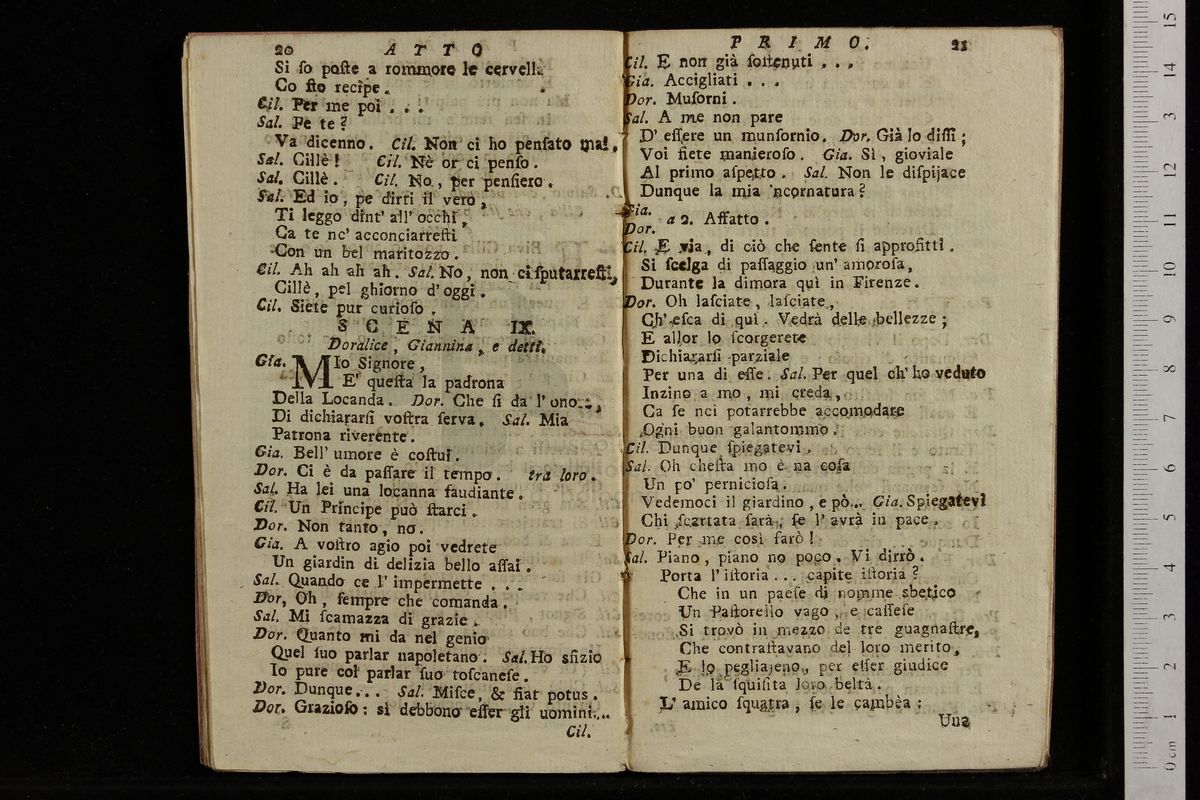 20 ATTO
Si ſo poſte a rommore le cervella
Co ſto recìpe.
Cil. Per me poi . . .
Sal. Pe te?
Va dicenno. Cil. Non ci ho penſato mai.
Sal. Cillè! Cil. Nè or ci penſo.
Sal. Cillè. Cil. No, per penſiero.
Sal. Ed io, pe dirti il vero,
Ti leggo dint' all' occhi,
Ca te nc' acconciarreſti
Con un bel maritozzo.
Cil. Ah ah ah ah. Sal. No, non ci ſputarreſti,
Cillè, pel ghiorno d'oggi.
Cil. Siete pur curioſo.
SCENA IX.
Doralice, Giannina, e detti.
Gia. MIo Signore,
E' queſta la padrona
Della Locanda. Dor. Che ſi da l'
Di dichiararſi voſtra ſerva. Sal. Mia
Patrona riverente.
Gia. Bell' umore è coſtui.
Dor. Ci è da paſſare il tempo. tra loro.
Sal. Ha lei una locanna ſaudiante.
Cil. Un Principe può ſtarci.
Dor. Non tanto, no.
Gia. A voſtro agio poi vedrete
Un giardin di delizia bello aſſai.
Sal. Quando ce l' impermette . . .
Dor, Oh, ſempre che comanda.
Sal. Mi ſcamazza di grazie.
Dor. Quanto mi da nel genio
Quel ſuo parlar napoletano. Sal. Ho sfizio
Io pure col parlar ſuo toſcaneſe.
Dor. Dunque... Sal. Miſce, & fiat potus.
Dor. Grazioſo: sì debbono eſſer gli uomini...
Cil.
PRIMO. 21
Cil. E non già ſoſtenuti . . .
Gia. Accigliati . . .
Dor. Muſorni.
Sal. A me non pare
D' eſſere un munſornio. Dor. Già lo diſſi;
Voi ſiete manieroſo. Gia. Sì, gioviale
Al primo aſpetto. Sal. Non le diſpijace
Dunque la mia 'ncornatura?
Gia.
a 2. Affatto.
Dor.
Cil. E via, di ciò che ſente ſi approfitti.
Si ſcelga di paſſaggio un' amoroſa,
Durante la dimora quì in Firenze.
Dor. Oh laſciate, laſciate,
Ch' eſca di quì. Vedrà delle bellezze;
E allor lo ſcorgerete
Dichiararſi parziale
Per una di eſſe. Sal. Per quel ch' ho veduto
Inzino a mo, mi creda,
Ca ſe nci potarrebbe accomodare
Ogni buon galantommo.
Cil. Dunque ſpiegatevi.
Sal. Oh cheſta mo è na coſa
Un po' pernicioſa.
Vedemoci il giardino, e pò... Gia. Spiegatevi
Chi ſcartata ſarà, ſe l' avrà in pace.
Dor. Per me così farò!
Sal. Piano, piano no poco. Vi dirrò.
Porta l' iſtoria... capite iſtoria?
Che in un paeſe di nomme sbetico
Un Paſtorello vago, e caſſeſe
Si trovò in mezzo de tre guagnaſtre,
Che contraſtavano del loro merito,
E lo pegliajeno, per eſſer giudice
De la ſquiſita loro beltà.
L' amico ſquatra, ſe le cambèa:
Una